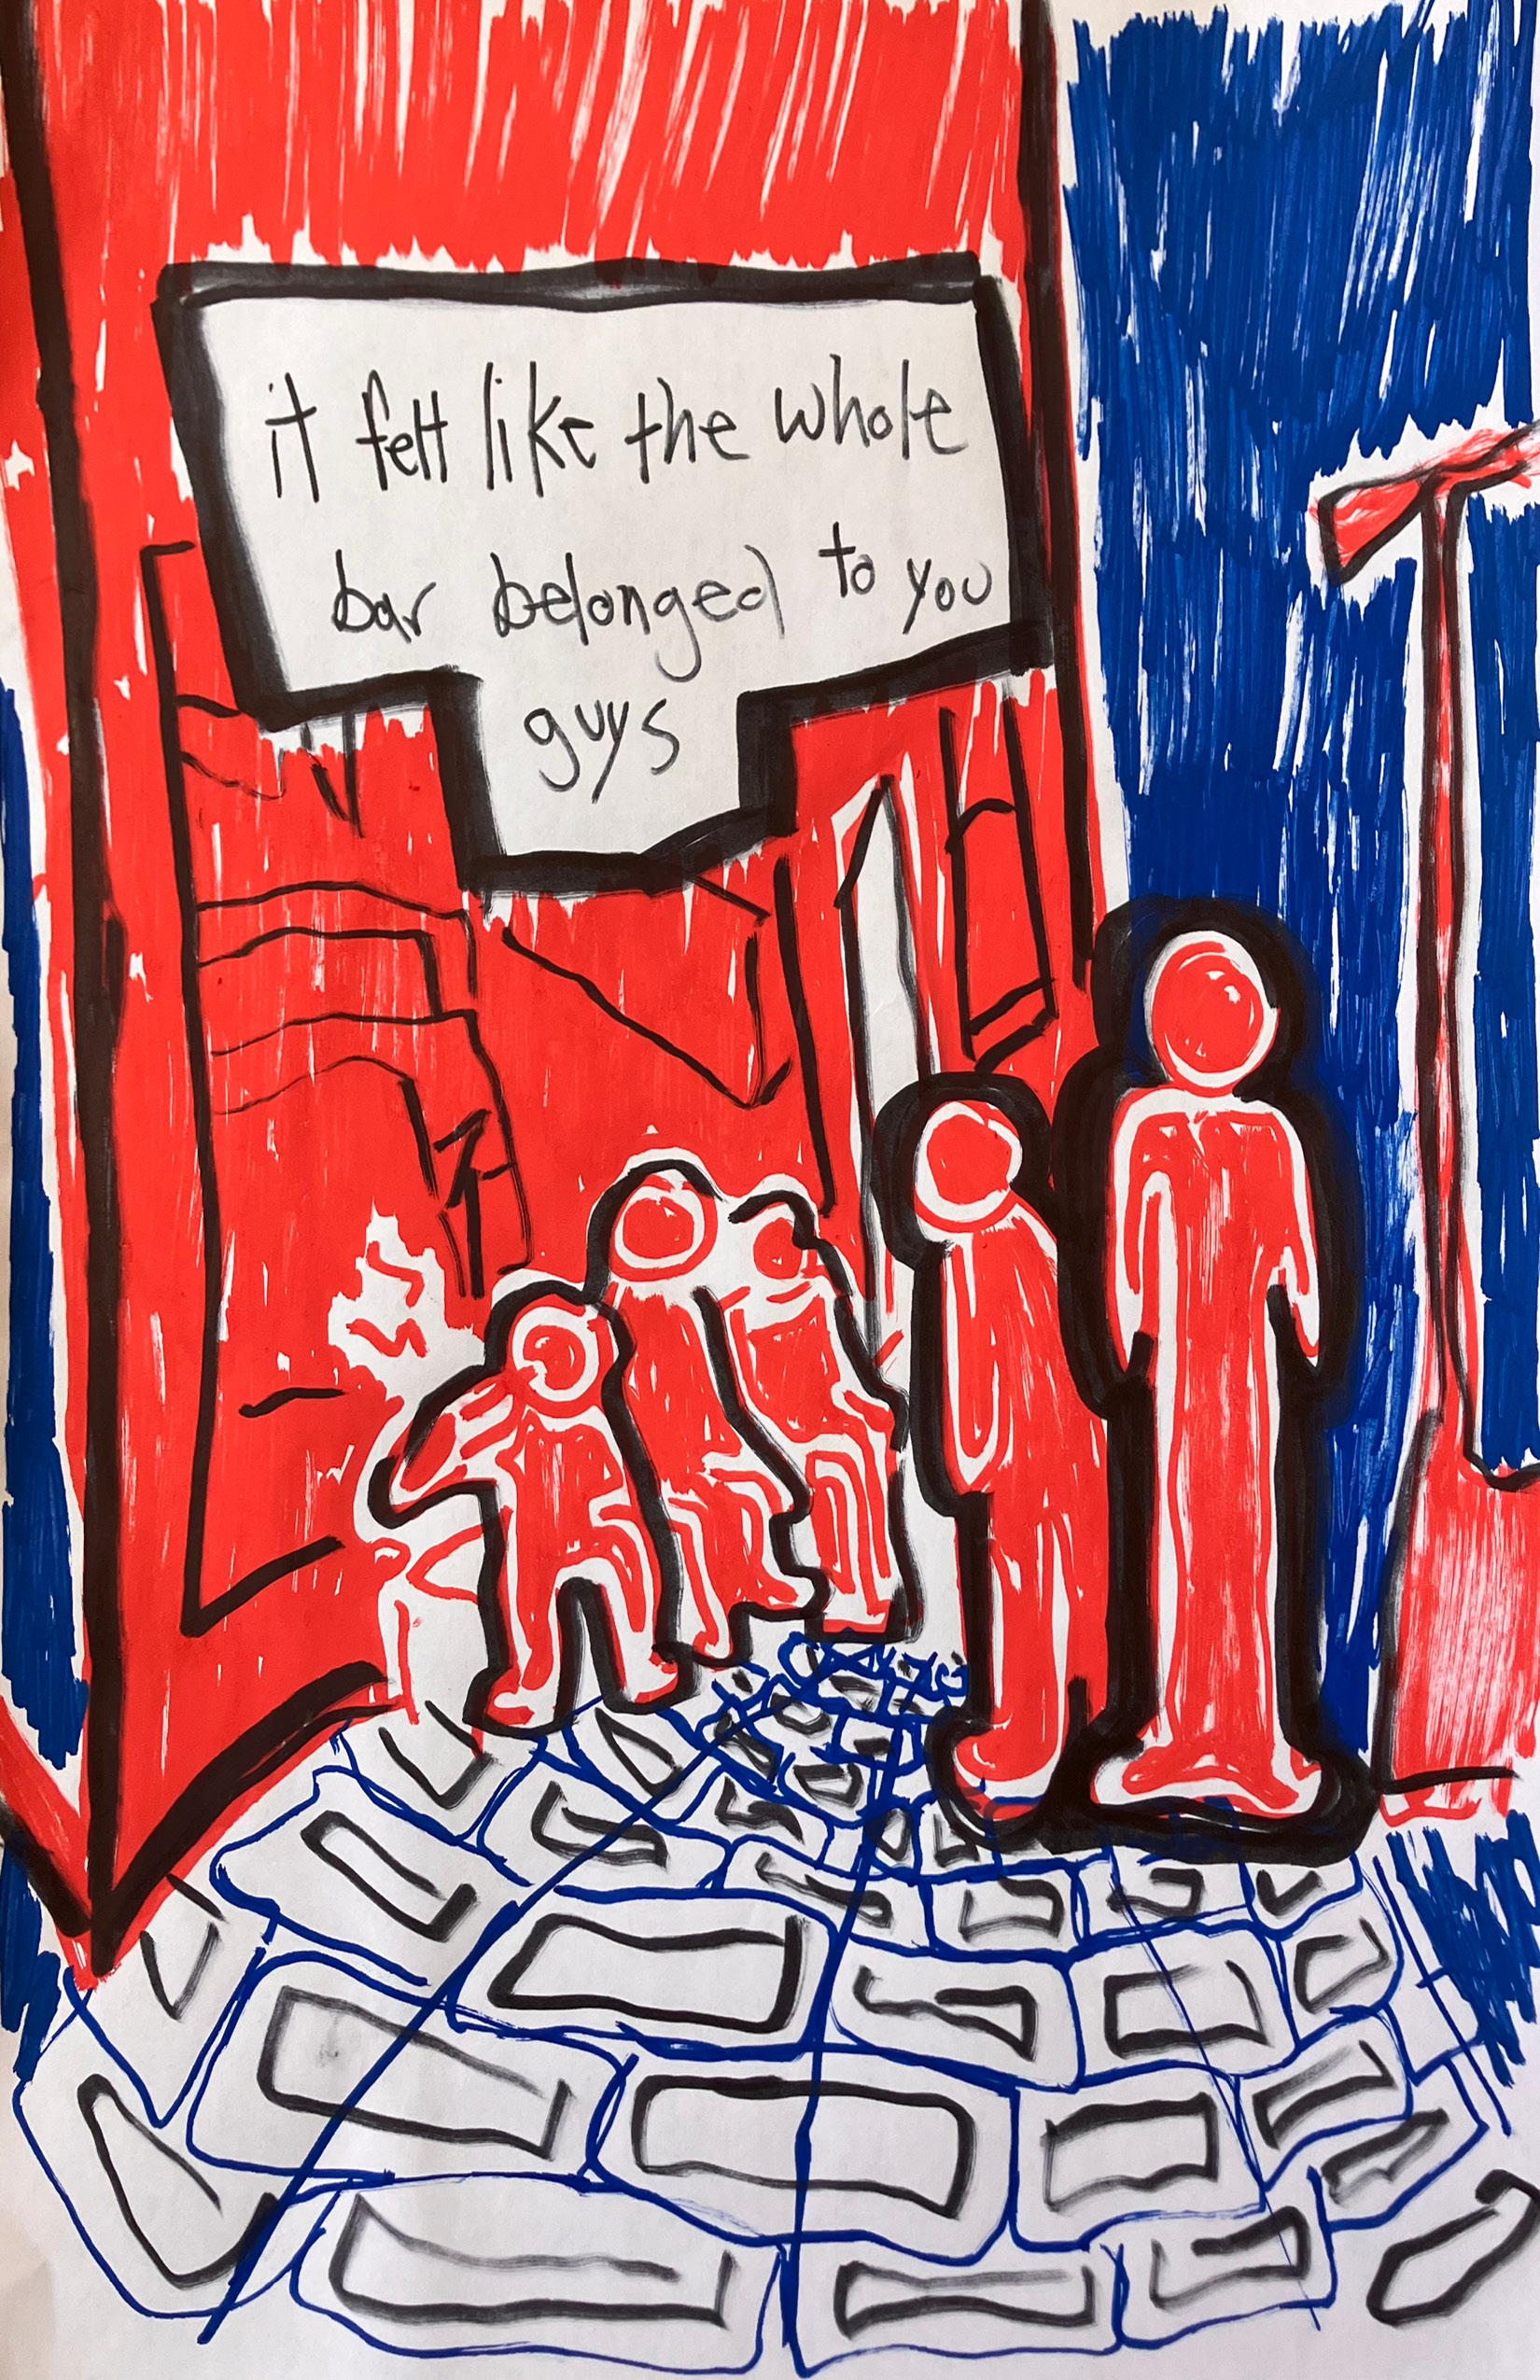 it felt like the whole
bar belonged to you
guys